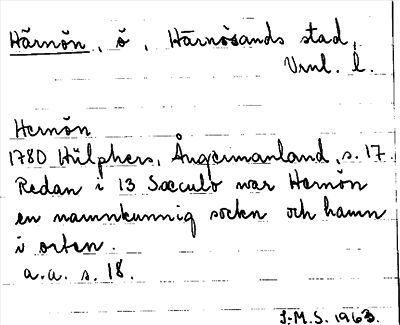 Härnön, ö, Härnösands stad,
Vrnl. l.
Hernön
1780 Hülphers, Ångermanland, s. 17.
Redan i 13 Sæculo war Hernön
en namnkunnig socken och hamn
i orten.
a.a. s. 18.
J.M.S. 1963.